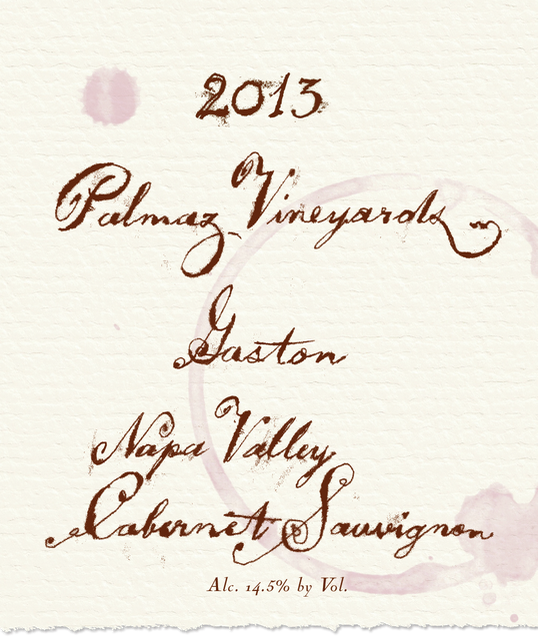 2013
Palmaz Vineyards
Gaston
Napa Valley
Cabernet Sauvignon
Alc. 14.5% by Vol.